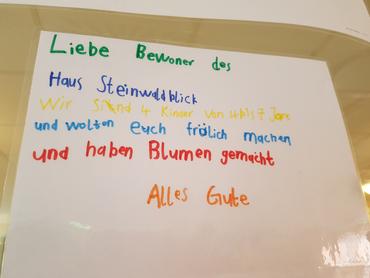 Liebe Bewoner des
Haus Steinwaldblick
Wir Sind 4 Kinder von 4 bis 7 Jare
und wolten euch frölich machen
und haben Blumen gemacht
Alles Gute